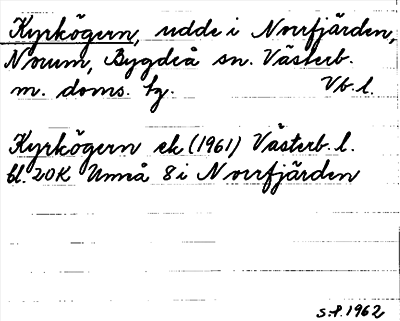 Kyrkögern, udde i Norrfjärden,
Norum, Bygdeå sn. Västerb.
m. doms. hg. Vb. l.
Kyrkögern ek. (1961) Västerb. l.
bl. 20K Umeå 8 i Norrfjärden
s.f. 1962